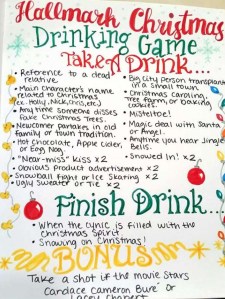 Hallmark Christmas
Drinking Game
Take A Drink...
• Reference to a dead
relative.
• Main Character's name
related to Christmas
(ex. Holly, Nick, Chris, etc.)
• Anytime someone disses
Fake Christmas Trees.
• Newcomer partakes in old
family or town tradition.
• Hot Chocolate, Apple cider,
or Egg Nog.
• "Near-miss" kiss x2
• Obvious product advertisement x2
• Snowball Fight or Ice Skating x2
• Ugly Sweater or Tie x2
• Big City person transplant
in a Small town.
• Christmas Caroling,
Tree farm, or baking
cookies.
• Mistletoe!
• Magic deal with Santa
or Angel.
• Anytime you hear Jingle
Bells.
• Snowed In! x2
Finish Drink...
• When the cynic is filled with the
Christmas Spirit.
• Snowing on Christmas!
BONUS
Take a shot if the movie Stars
Candace Cameron Bure or
Lacey Chabert